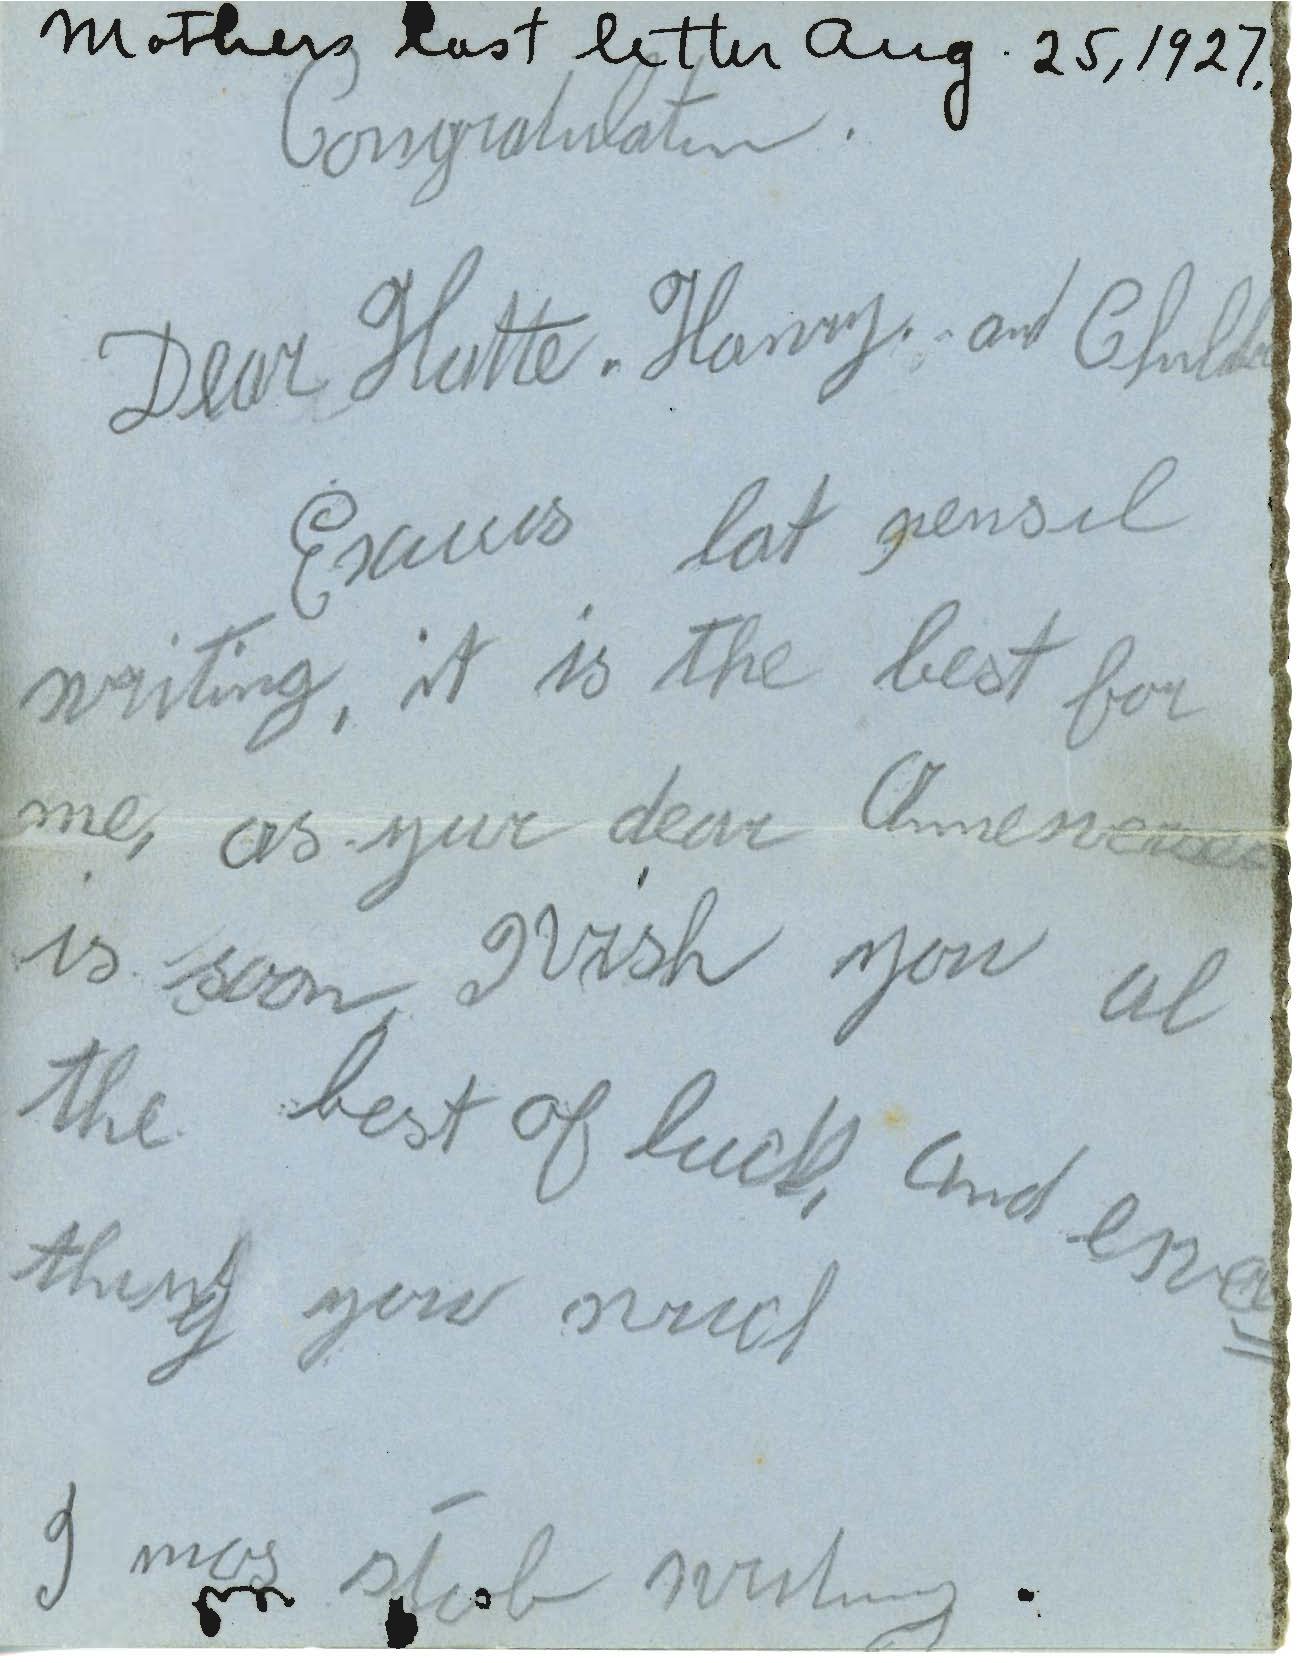 Mothers last letter Aug. 25, 1927.
Congratulation.
Dear Hatte. Harry. and Children
Excuus lat pensil
writing, it is the best for
me, as yur dear
is soon, Wish you al
the best of luck, and eve
thing you
I mos stob writing.